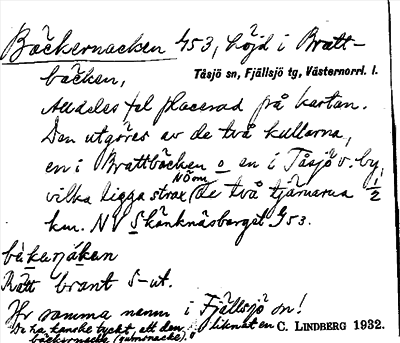 Bäckernacken 453, höjd i Bratt-
bäcken,
Tåsjö sn, Fjällsjö tg, Västernorrl. l.
Alldeles fel placerad på kartan.
Den utgöres av de två kullarna,
en i Brattbäcken o en i Tåsjö v. by,
NÖom
vilka ligga strax de två tjärnarna 1/2
km. NV Skånknäsberget 453.
Rätt brant S-ut.
Jfr samma namn i Fjällsjö sn!
De ha kanske tyckt, att den liknat en C. LINDBERG 1932.
bäckernacke (gumsnacke).